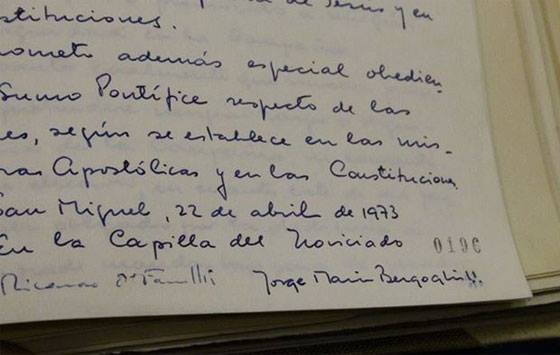 de Jesús y en
stituciones.
rometo además especial obedien
Sumo Pontífice respecto de las
es, según se establece en las mis-
ras Apostólicas y en las Constituciones
San Miguel, 22 de abril de 1973
En la Capilla del Noviciado 0196
Jorge Mario Bergoglio